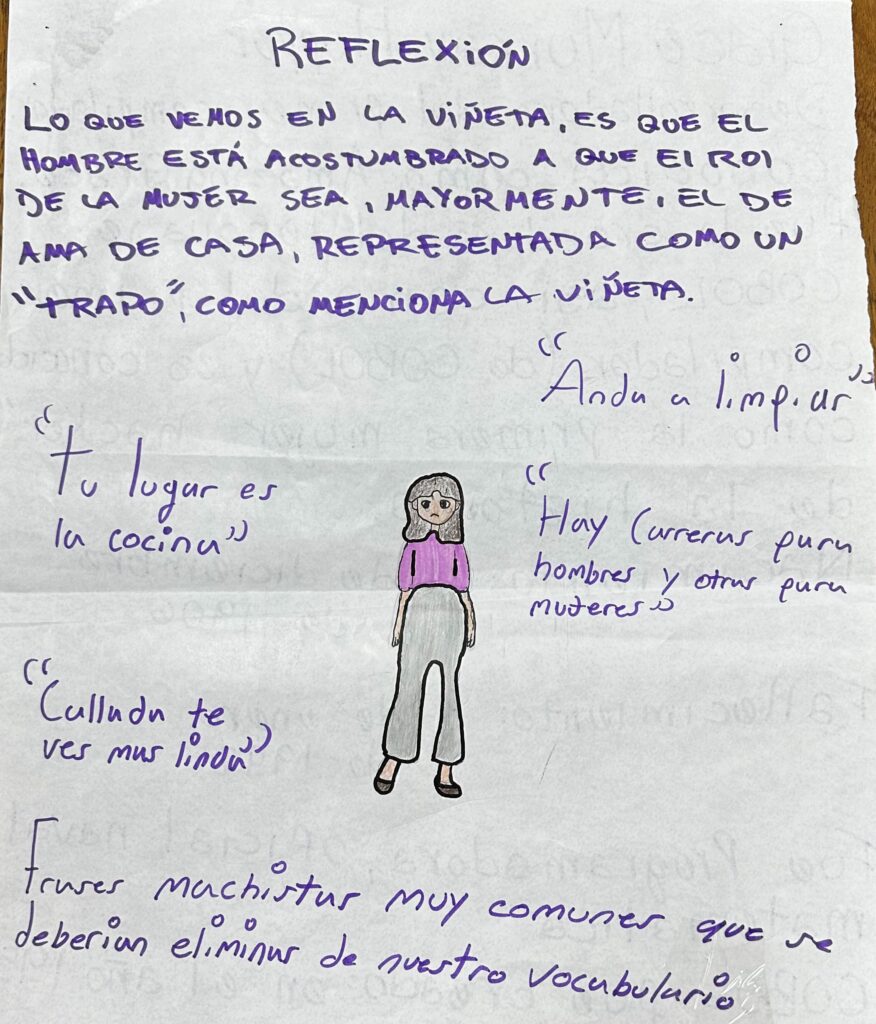 REFLEXIÓN
LO QUE VEMOS EN LA VIÑETA, ES QUE EL
HOMBRE ESTÁ ACOSTUMBRADO A QUE El ROl
DE LA MUJER SEA, MAYORMENTE, EL DE
AMA DE CASA, REPRESENTADA COMO UN
"TRAPO", COMO MENCIONA LA VIÑETA.
"Anda a limpiar"
"Tu lugar es
la cocina"
"Hay Carreras para
hombres y otras para
mujeres"
"Callada te
ves mas linda"
Frases machistas muy comunes que se
deberian eliminar de nuestro vocabulario